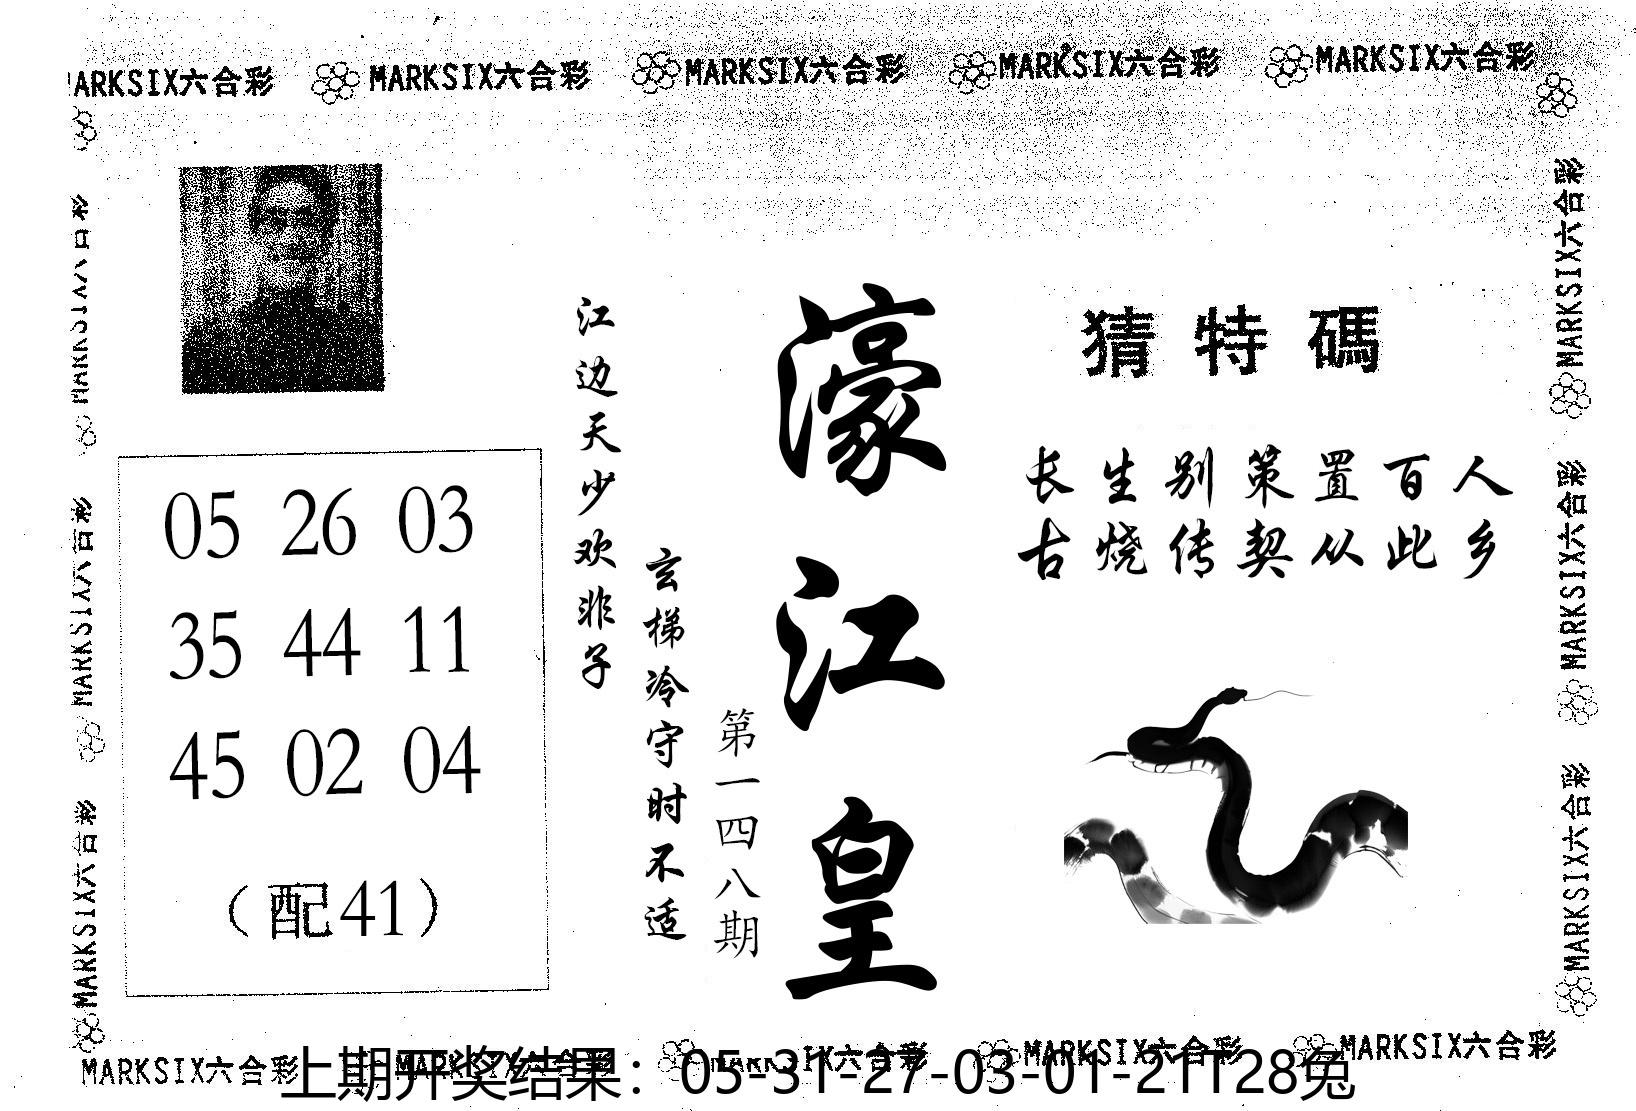 MARKSIX六合彩 MARKSIX六合彩 MARKSIX六合彩 MARKSIX六合彩 MARKSIX六合彩
MARKSIX六合彩
MARKSIX六合彩
MARKSIX六合彩
猜特碼
长生别策置百人
古烧传契从此乡
濠江皇
第一四八期
江边天少欢非子
玄梯冷守时不适
05 26 03
35 44 11
45 02 04
（配41）
MARKSIX六合彩
MARKSIX六合彩
MARKSIX六合彩
MARKSIX六合彩 MARKSIX六合彩 MARKSIX六合彩 MARKSIX六合彩 MARKSIX六合彩
上期开奖结果：05-31-27-03-01-21T28兔